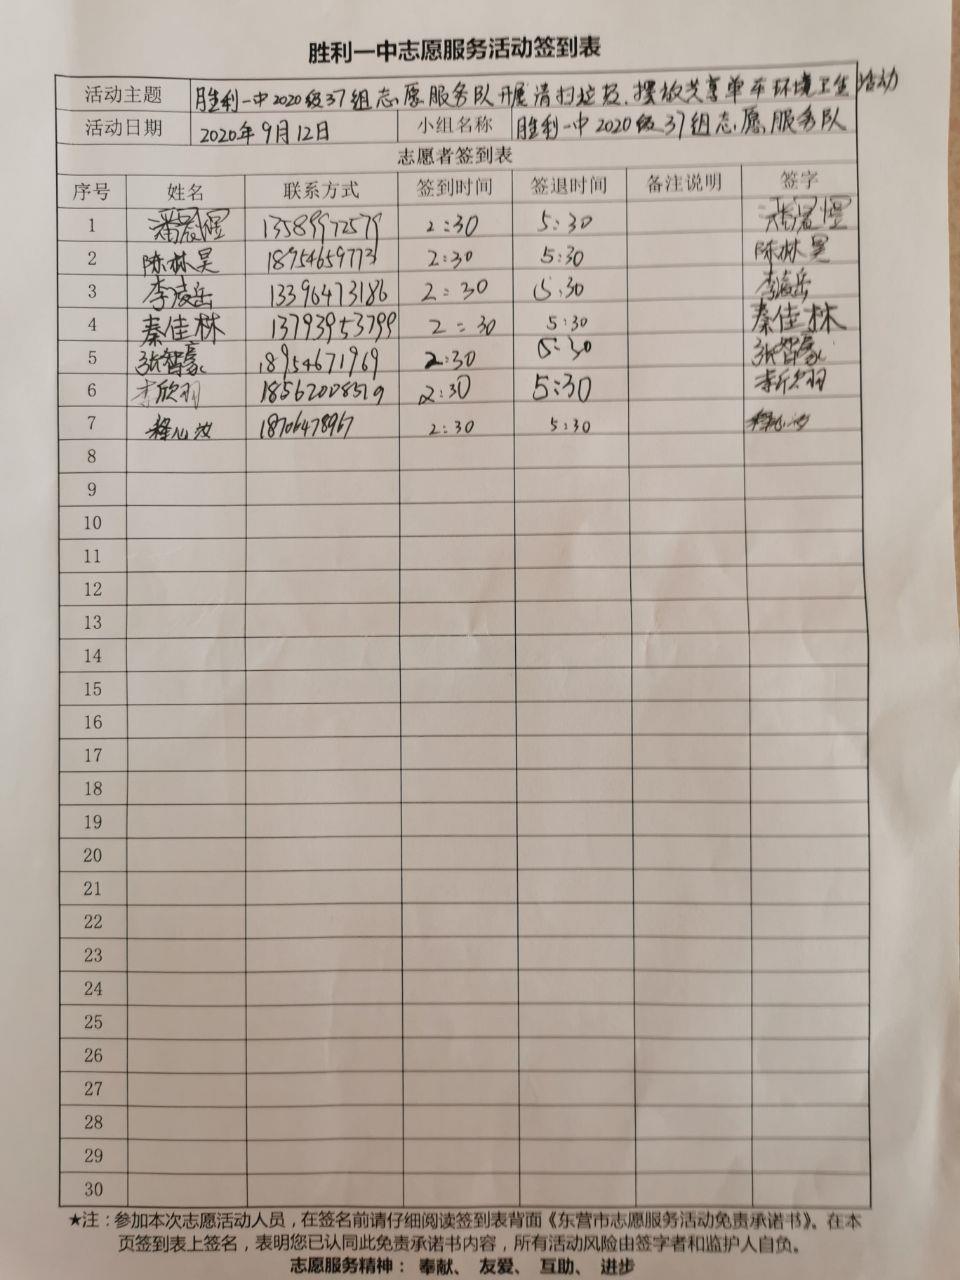 胜利一中志愿服务活动签到表
活动主题 胜利一中2020级37组志愿服务队开展清扫垃圾、摆放共享单车环境卫生活动
活动日期 2020年9月12日 小组名称 胜利一中2020级37组志愿服务队
志愿者签到表
序号 姓名 联系方式 签到时间 签退时间 备注说明 签字
1 潘冠煜 13589972579 2:30 5:30 潘冠煜
2 陈林昊 18954659773 2:30 5:30 陈林昊
3 李凌岳 13396473186 2:30 5:30 李凌岳
4 秦佳林 13793953799 2:30 5:30 秦佳林
5 张智豪 18954671969 2:30 5:30 张智豪
6 李欣羽 18562008519 2:30 5:30 李欣羽
7 18706478967 2:30 5:30
8
9
10
11
12
13
14
15
16
17
18
19
20
21
22
23
24
25
26
27
28
29
30
★注：参加本次志愿活动人员，在签名前请仔细阅读签到表背面《东营市志愿服务活动免责承诺书》。在本
页签到表上签名，表明您已认同此免责承诺书内容，所有活动风险由签字者和监护人自负。
志愿服务精神： 奉献、 友爱、 互助、 进步